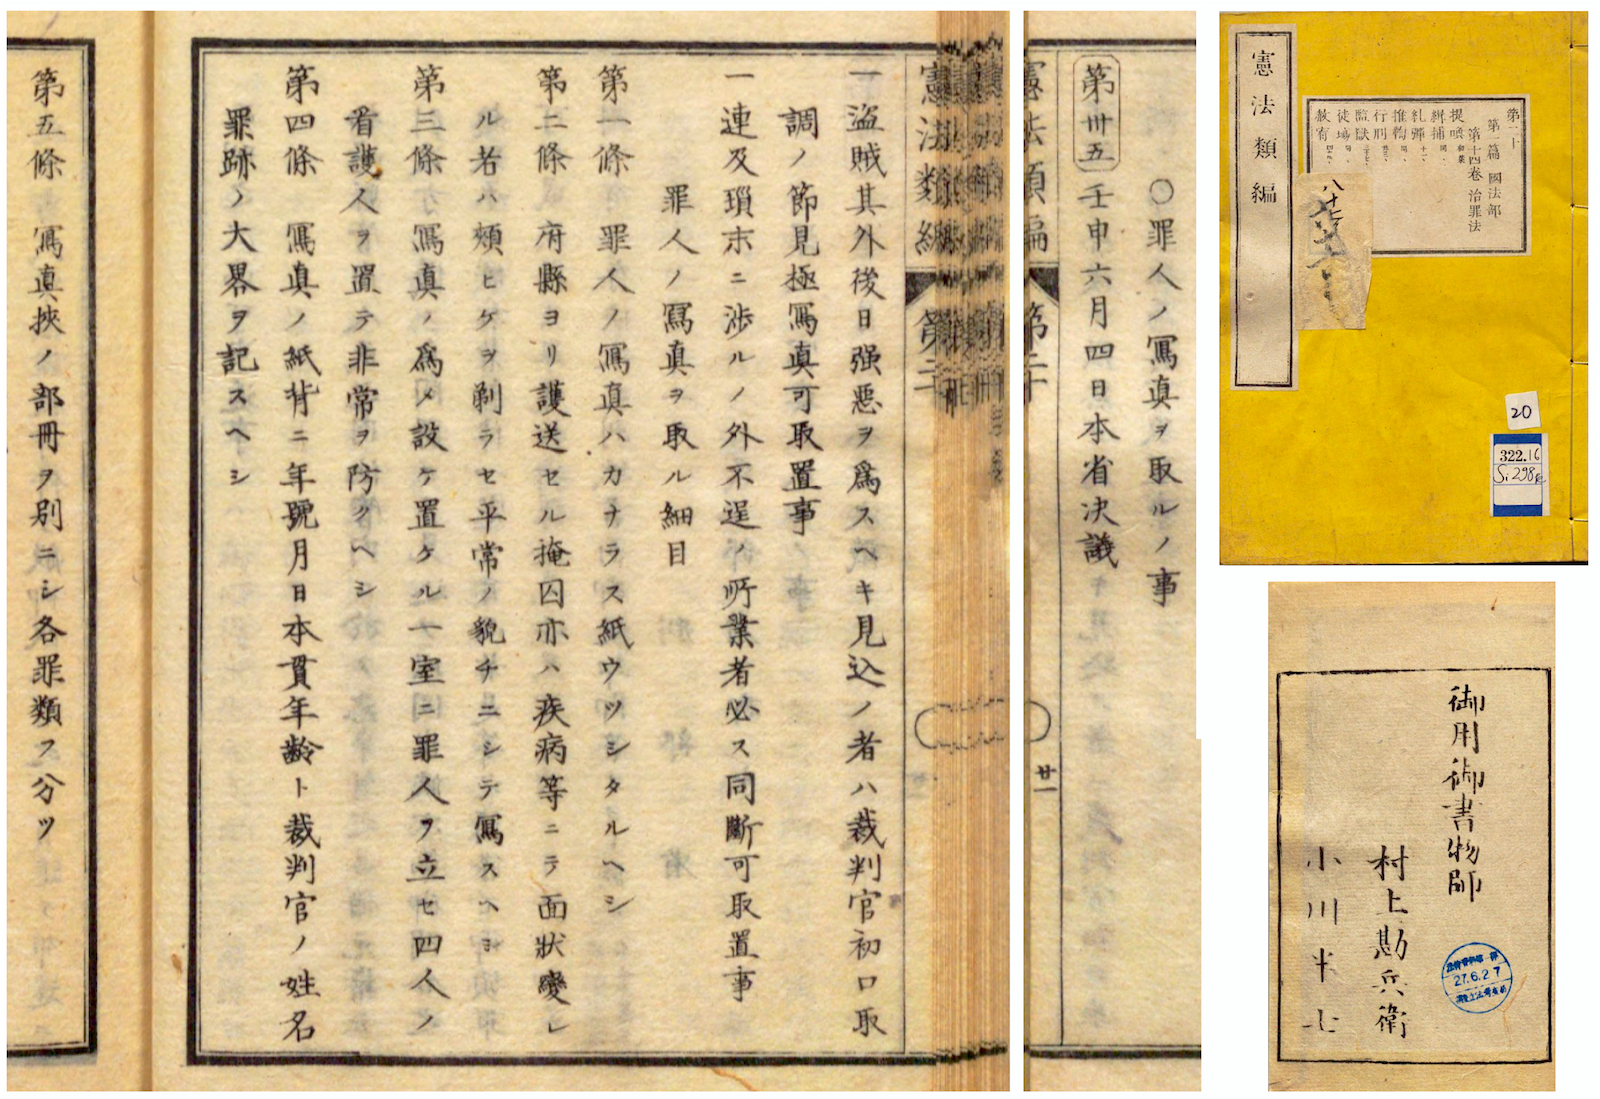 〇罪人ノ寫真ヲ取ルノ事
第卅五 壬申六月四日本省決議
憲法類編 第二十
廿一
一盜賊其外後日强惡ヲ爲スヘキ見込ノ者ハ裁判官初口取
調ノ節見極寫真可取置事
一連及瑣末ニ渉ルノ外不逞ノ所業者必ス同斷可取置事
罪人ノ寫真ヲ取ル細目
第一條 罪人ノ寫真ハカナラス紙ウツシタルヘシ
第二條 府縣ヨリ護送セル掩囚亦ハ疾病等ニテ面狀變シ
ル者ハ頰ヒケヲ剃ラセ平常ノ貌チニシテ寫スヘシ
第三條 寫真ノ爲メ設ケ置ケル一室ニ罪人ヲ立セ四人ノ
看護人ヲ置テ非常ヲ防クヘシ
第四條 寫真ノ紙背ニ年號月日本貫年齡ト裁判官ノ姓名
罪跡ノ大畧ヲ記スヘシ
第五條 寫真挾ノ部冊ヲ别ニシ各罪類ヲ分ツ
憲法類編
第二十
第一篇 國法部
第十四卷 治罪法
捉喚
緝捕
糺彈
推鞫
行刑
監獄
徒場
赦宥
20
322.16
Si298k
御用御書物師
村上勘兵衛
小川半七
27.6.27